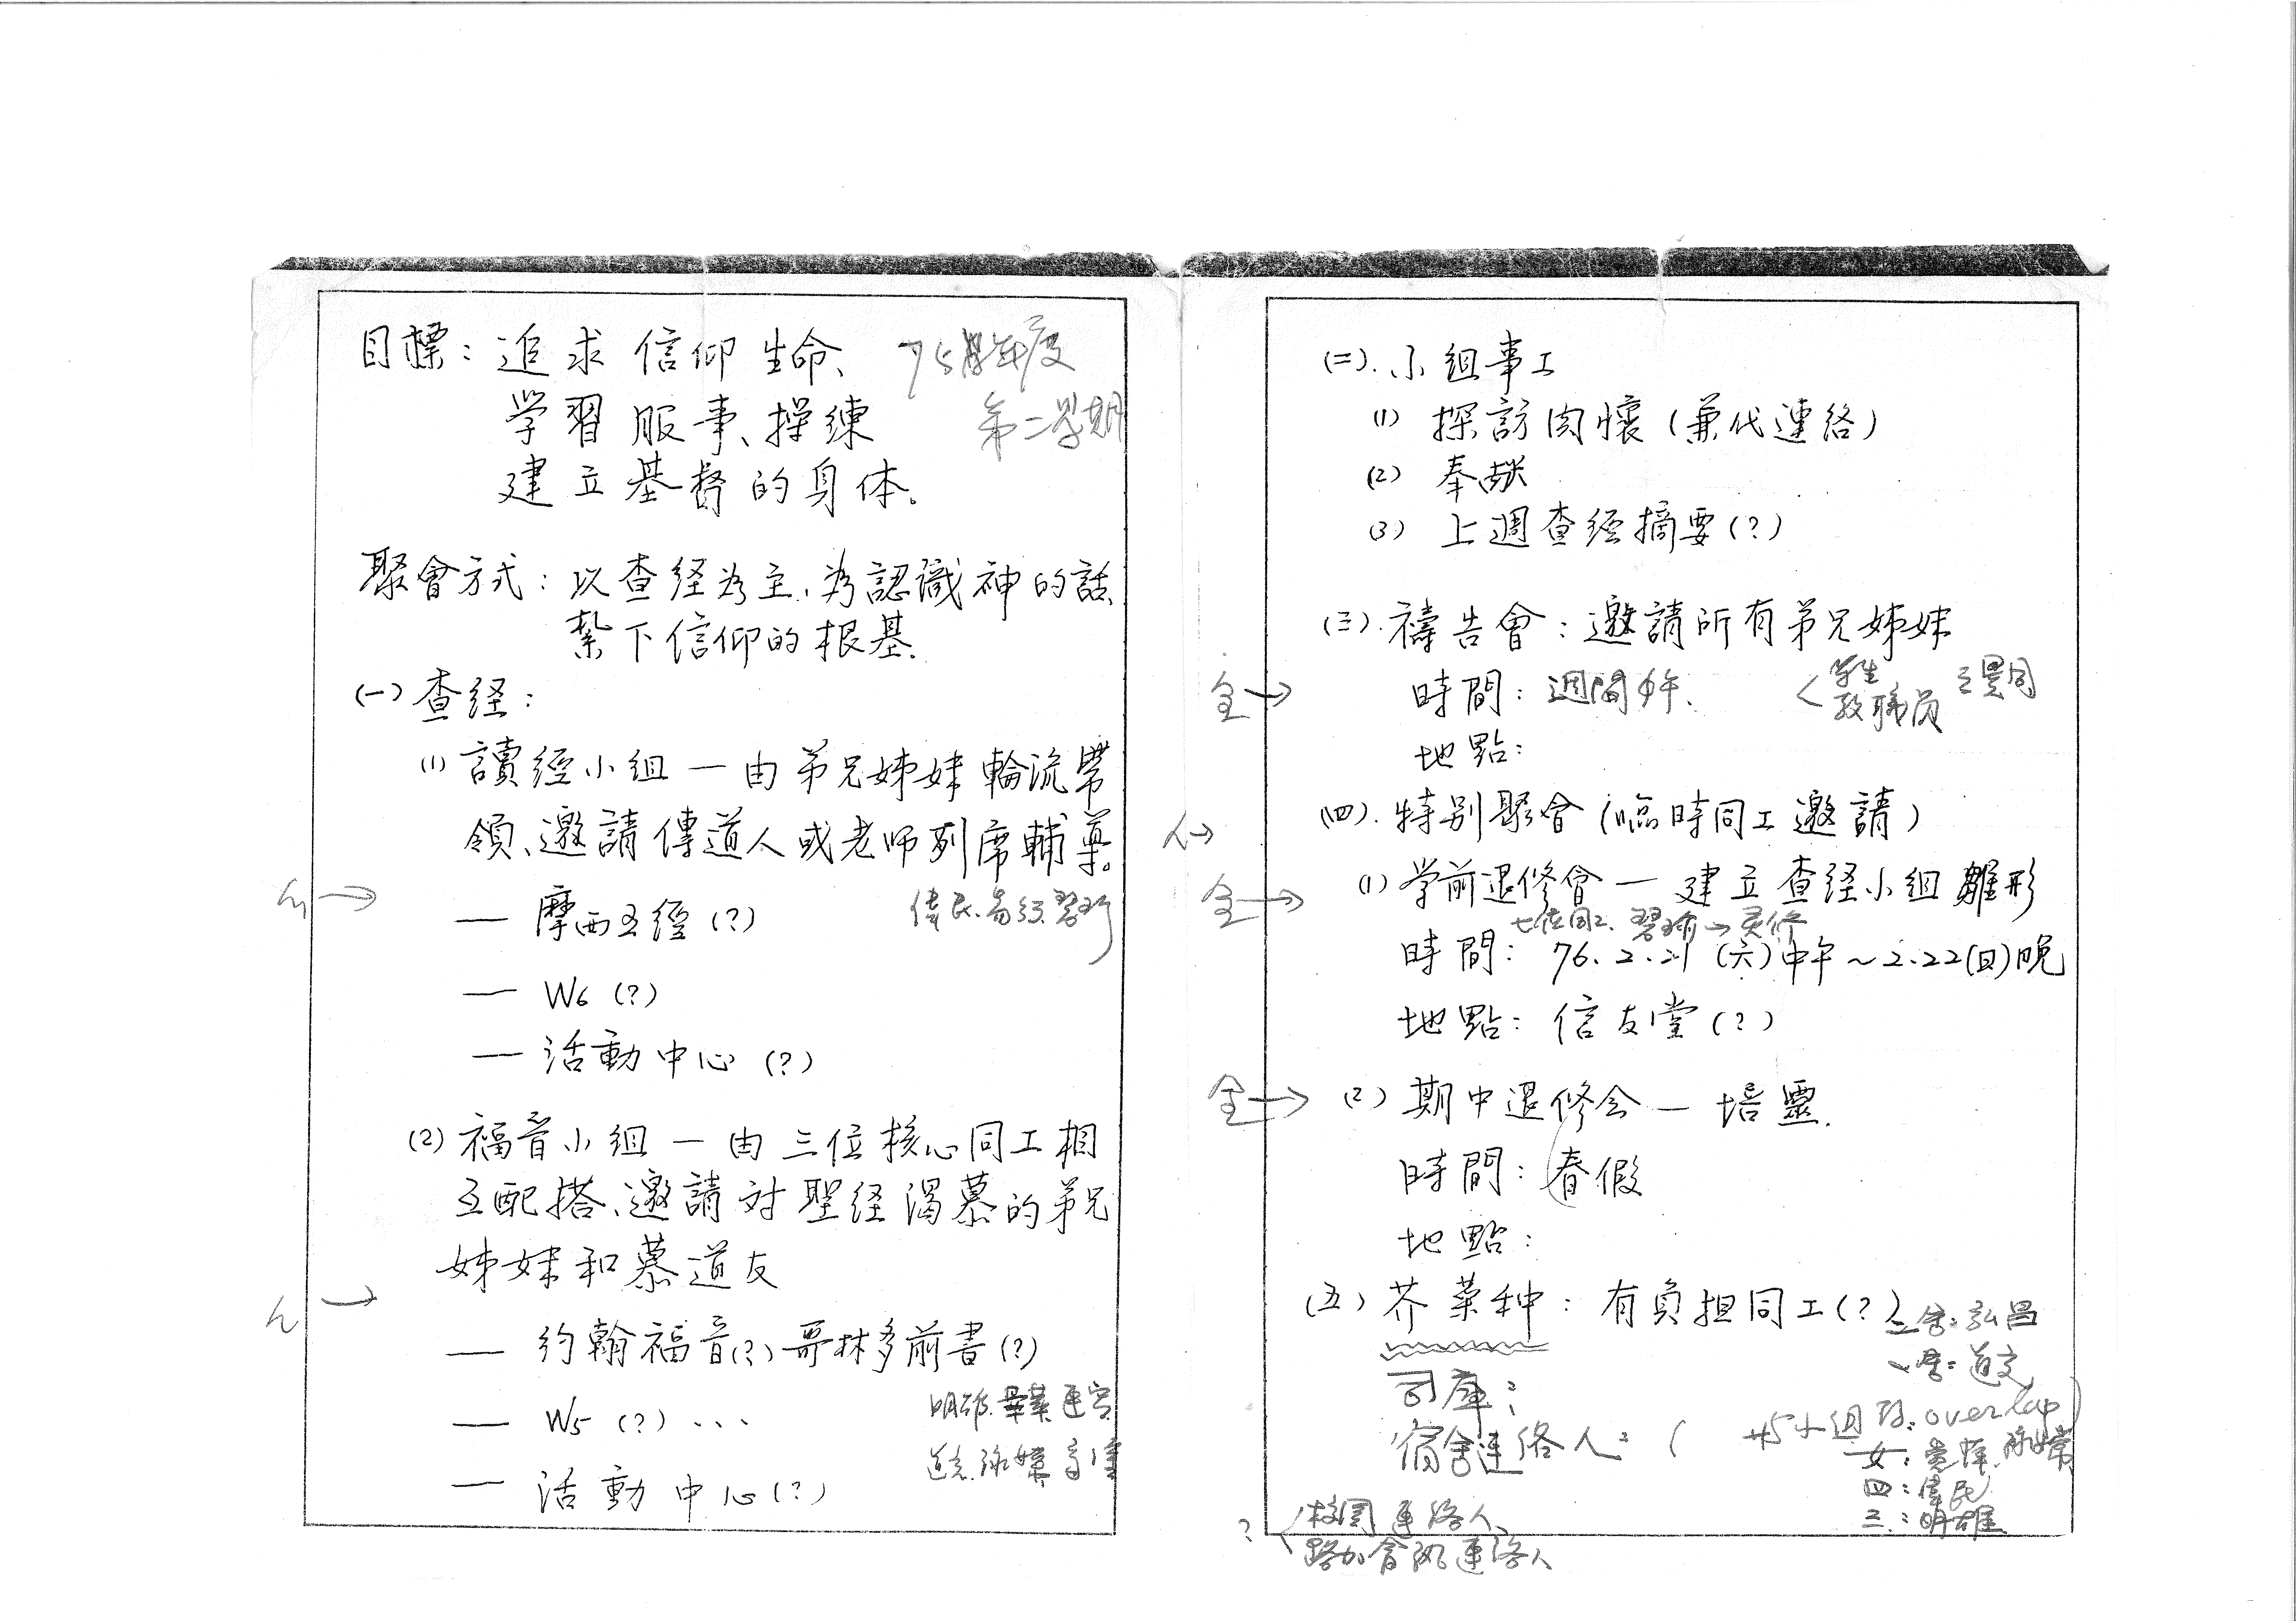 目標：追求信仰生命、
75學年度
学習服事、操練
第二學期
建立基督的身体。
聚會方式：以查経為主，為認識神的話、
紮下信仰的根基.
(一) 查経：
(1) 讀經小組 — 由弟兄姊妹輪流帶
領、邀請傳道人或老师列席輔導。
— 摩西五經(?)
偉民.
— W6 (?)
— 活動中心 (?)
(2) 福音小組 — 由三位核心同工相
互配搭、邀請対聖経渴慕的弟兄
姊妹和慕道友
— 約翰福音(?) 哥林多前書(?)
— W5 (?) ...
— 活動中心(?)
(二). 小組事工
(1) 探訪関懷 (兼代連絡)
(2) 奉献
(3) 上週查経摘要(?)
(三). 禱告會：邀請所有弟兄姊妹
全→
時間：週間中午.
学生
教職员
地點：
(四). 特别聚會 (臨時同工邀請)
全→
(1) 学前退修會 — 建立查経小組雛形
七位同工. 翠瑜→灵修
時間：76.2.21 (六)中午~2.22(日)晚
地點：信友堂(?)
全→
(2) 期中退修会 — 培靈.
時間：春假
地點：
(五) 芥菜种：有負担同工(?)
二舍：弘昌
司庫：
宿舍連络人：( 与小組長 overlap)
四：偉民
三：明雄
? 校園連络人
路加會 連络人